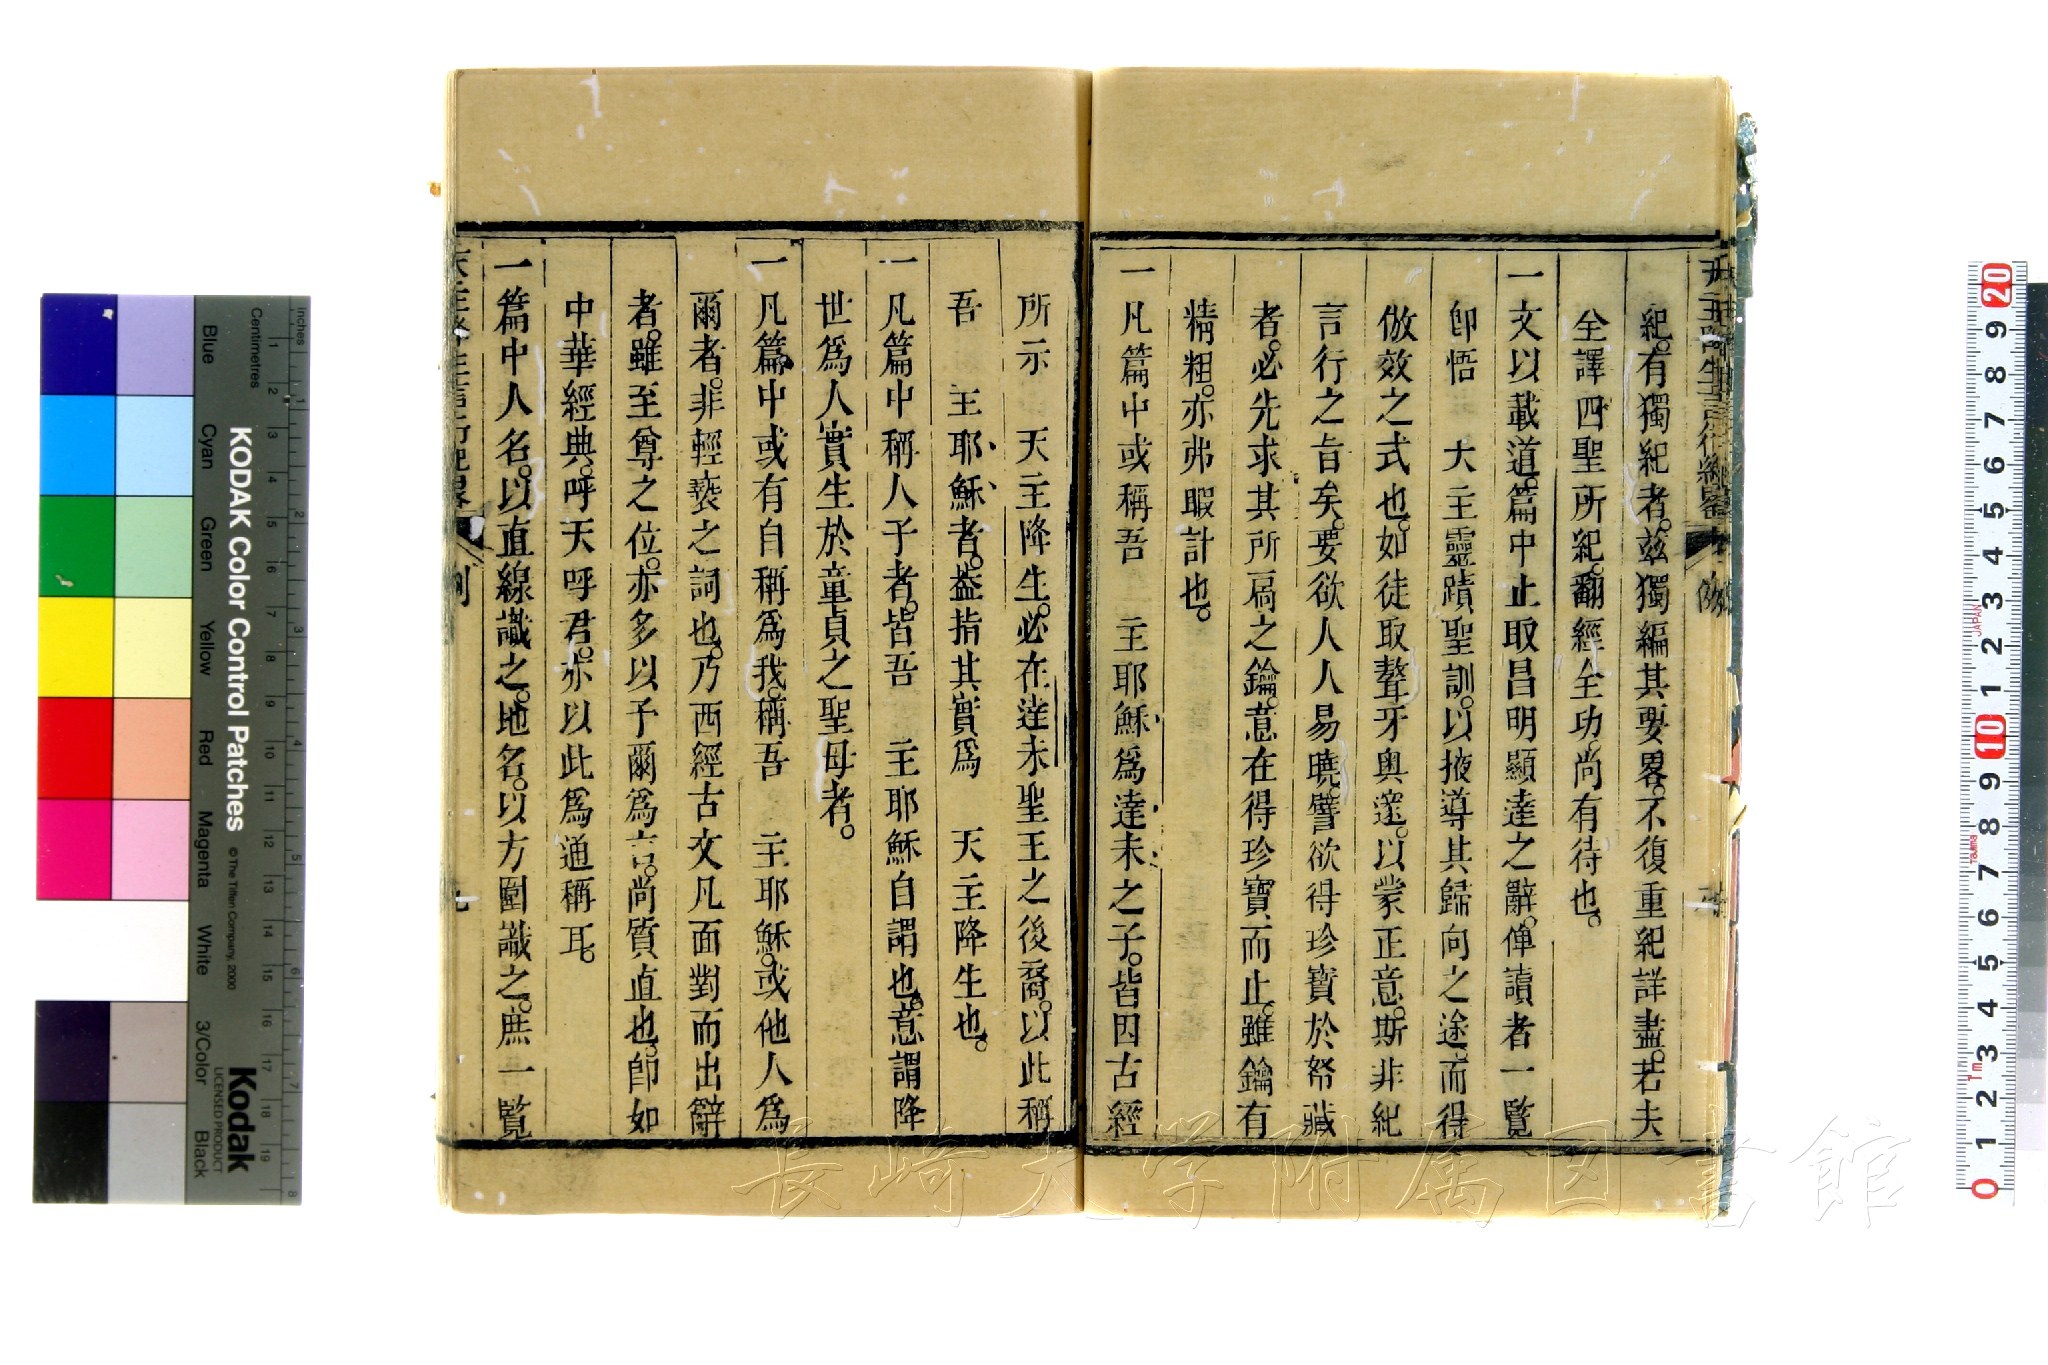 紀。有獨紀者。茲獨編其要畧。不復重紀詳盡。若夫
全譯四聖所紀。翻經全功。尚有待也。
一文以載道。篇中止取昌明顯達之辭。俾讀者一覽
卽悟　大主靈蹟聖訓。以掖導其歸向之途。而得
倣效之式也。如徒取聱牙奥邃。以蒙正意。斯非紀
言行之旨矣。要欲人人易曉。譬欲得珍寶於帑藏
者。必先求其所扃之鑰。意在得珍寶而止。雖鑰有
精粗。亦弗暇計也。
一凡篇中或稱吾　主耶穌爲達未之子。皆因古經
所示　天主降生。必在達未聖王之後裔。以此稱
吾　主耶穌者。益指其實爲　天主降生也。
一凡篇中稱人子者。皆吾　主耶穌自謂也。意謂降
世爲人。實生於童貞之聖母者。
一凡篇中或有自稱爲我。稱吾　主耶穌。或他人爲
爾者。非輕褻之詞也。乃西經古文凡面對而出辭
者。雖至尊之位。亦多以予爾爲言。尚質直也。卽如
中華經典。呼天呼君。亦以此爲通稱耳。
天主降生言行紀畧　例　九
一篇中人名。以直線識之。地名。以方圍識之。庶一覽
KODAK Color Control Patches
© The Tiffen Company, 2000
Kodak
LICENSED PRODUCT
inches
Centimetres
Blue
Cyan
Green
Yellow
Red
Magenta
White
3/Color
Black
長崎大学附属図書館
JAPAN
Tajima
1m